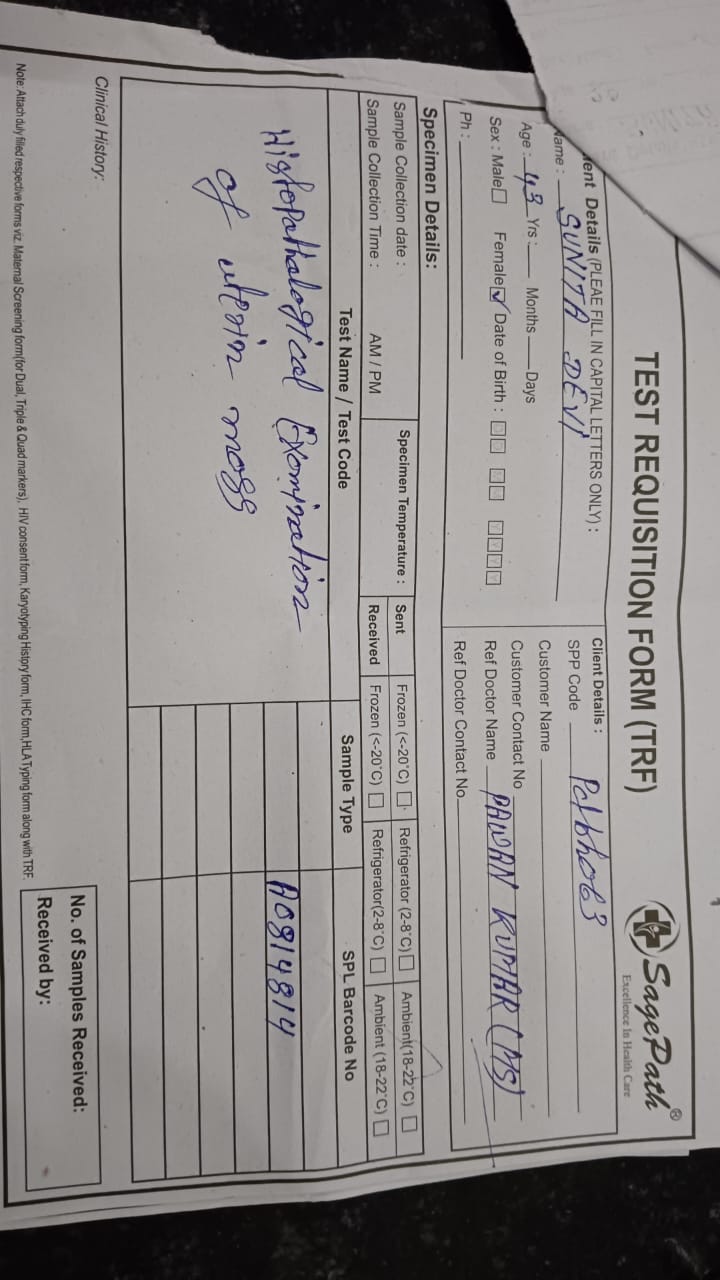 TEST REQUISITION FORM (TRF)
SagePath®
Excellence In Health Care
ient Details (PLEAE FILL IN CAPITAL LETTERS ONLY) :
Name : SUNITA DEVI
Age : 43 Yrs : Months Days
Sex : Male Female Date of Birth :
Ph :
Client Details :
SPP Code
Customer Name
Customer Contact No
Ref Doctor Name PAWAN KUMAR (MS)
Ref Doctor Contact No
Specimen Details:
Sample Collection date :
Sample Collection Time : AM / PM
Specimen Temperature :
Sent Frozen (<-20°C) Refrigerator (2-8°C) Ambient(18-22°C)
Received Frozen (<-20°C) Refrigerator(2-8°C) Ambient (18-22°C)
Test Name / Test Code Sample Type SPL Barcode No
Histopathological Examination
of uterin mass
A0814814
Clinical History:
No. of Samples Received:
Received by:
Note: Attach duly filled respective forms viz. Maternal Screening form(for Dual, Triple & Quad markers), HIV consent form, Karyotyping History form, IHC form, HLA Typing form along with TRF.